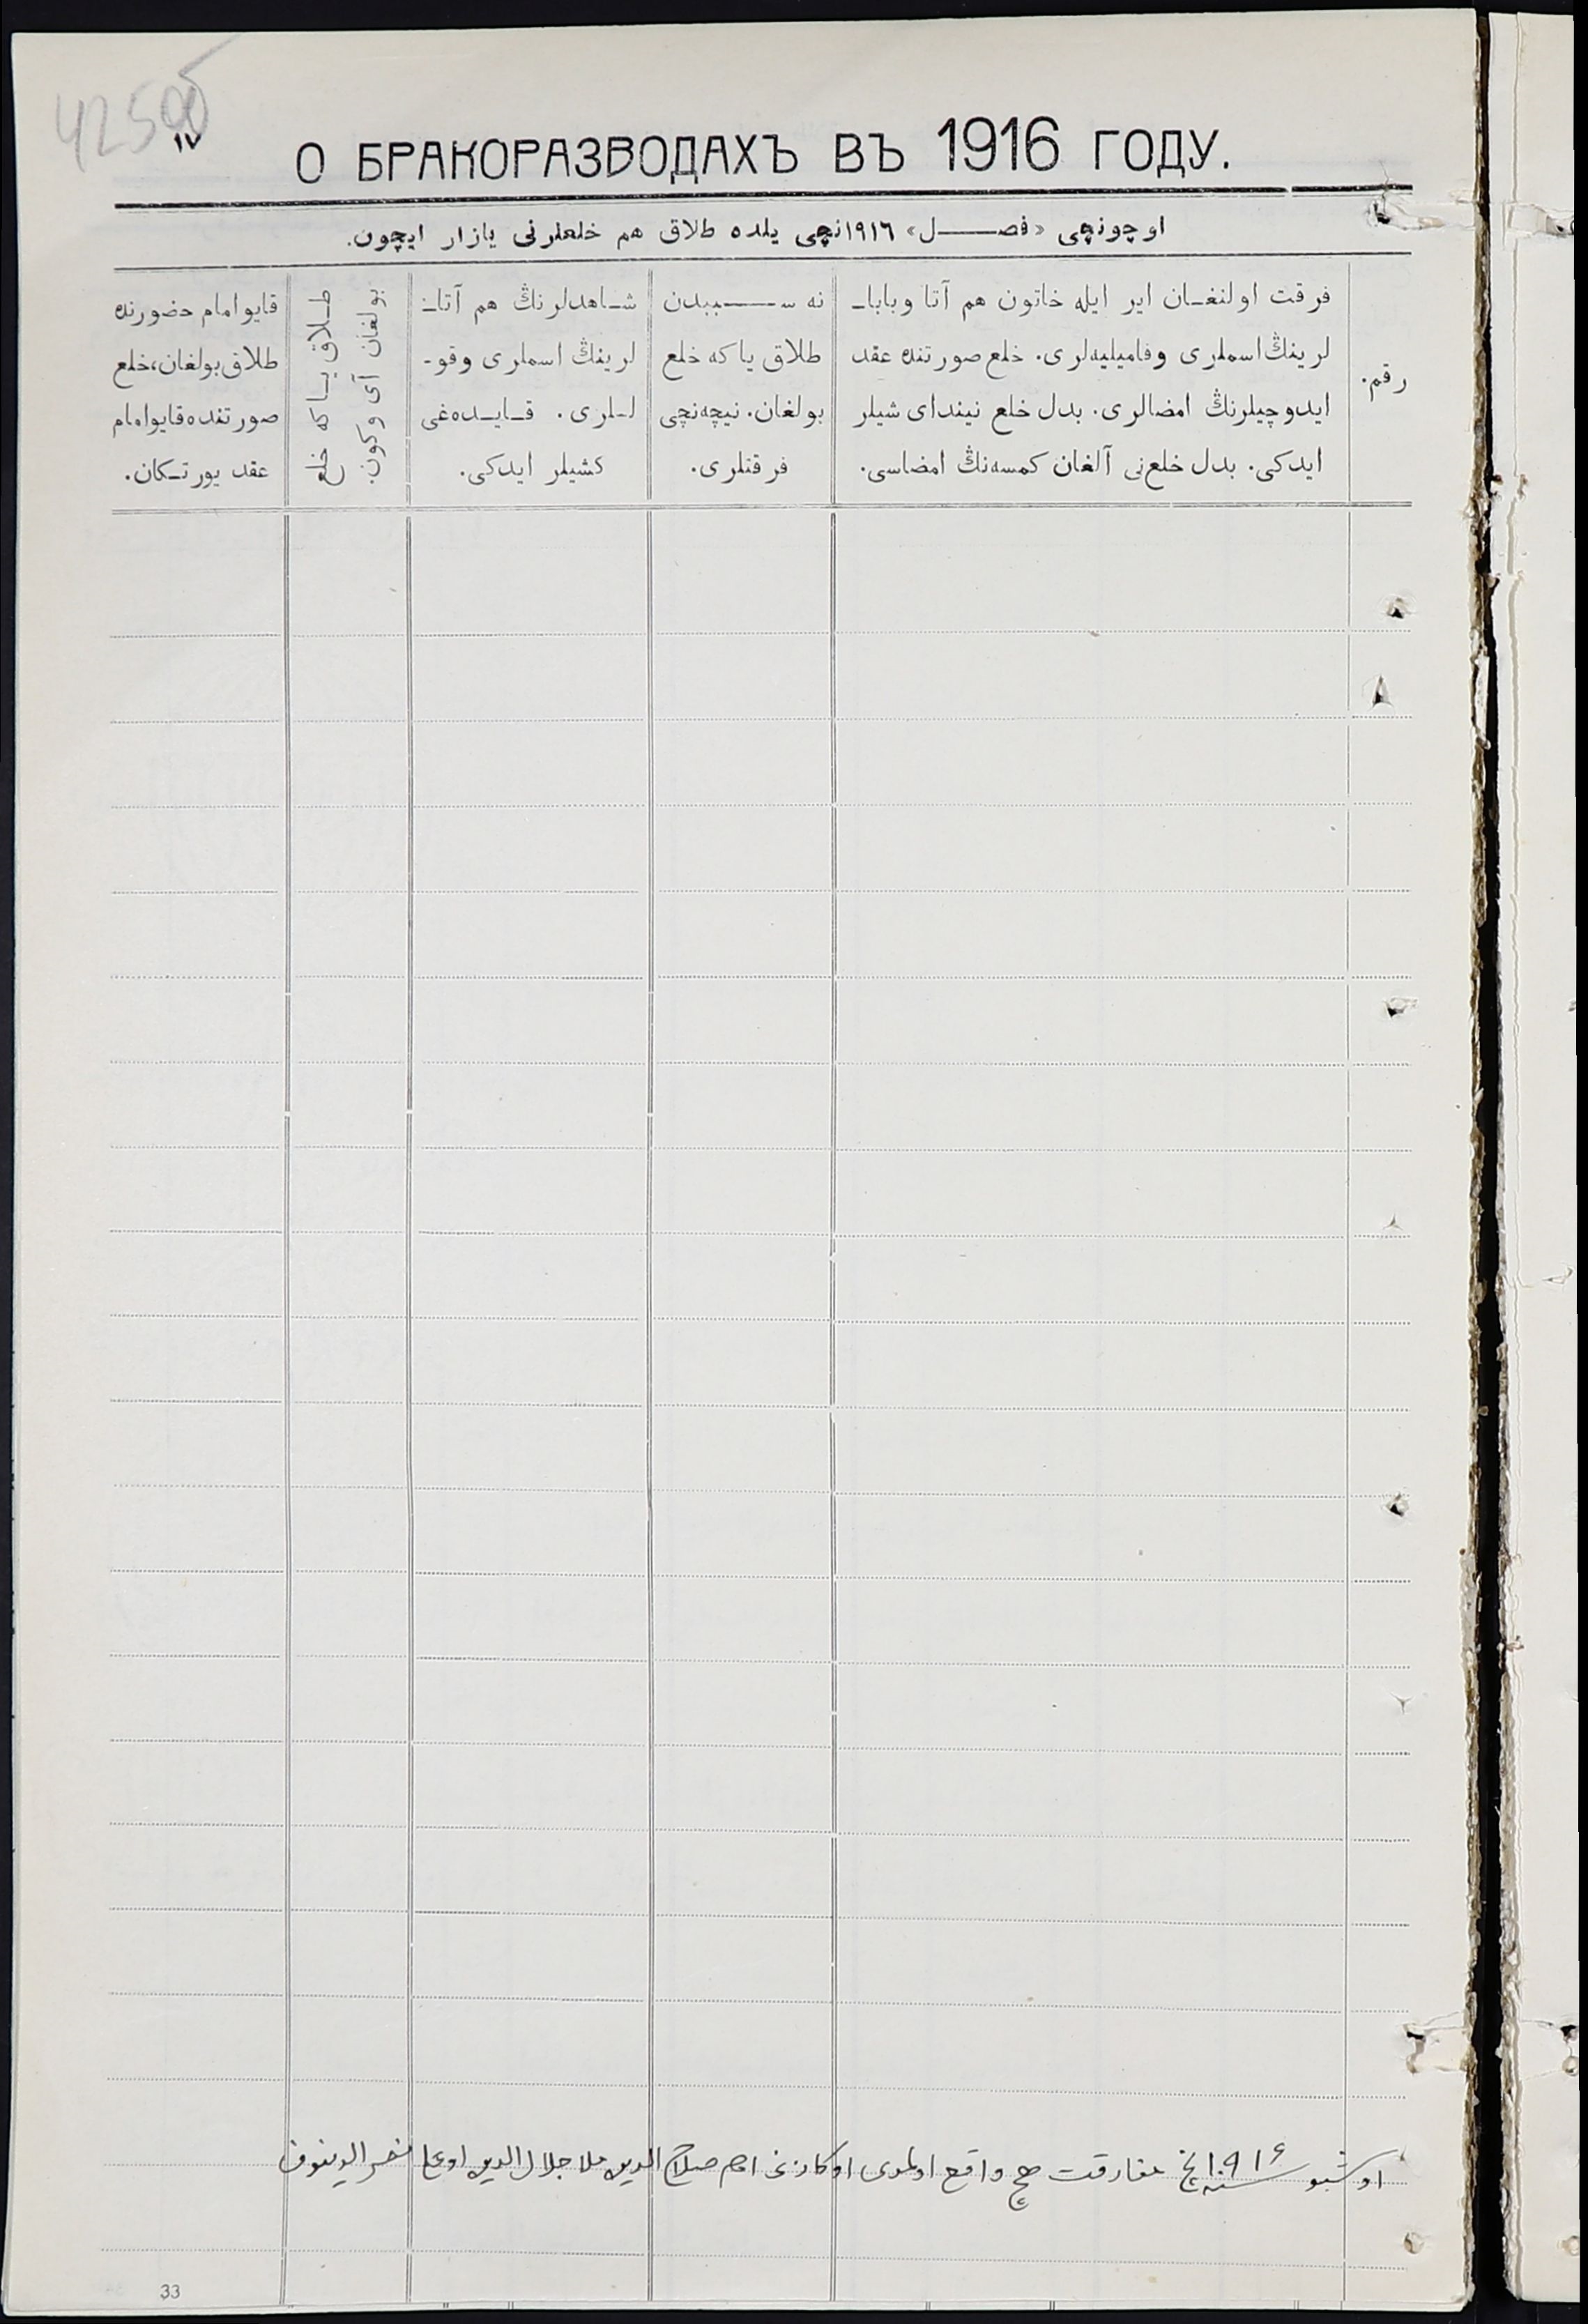 425об
١٧
О БРАКОРАЗВОДАХЪ ВЪ 1916 ГОДУ.
اوچونچی «فصـــل» ١٩١٦نچی یلده طلاق هم خلعلرنی یازار ایچون.
رقم.
فرقت اولنغـان ایر ایله خاتون هم آتا وبابا‌ـ
لرینڭ اسملری وفامیلیه‌لری. خلع صورتنده عقد
ایدوچیلرنڭ امضالری. بدل خلع نیندای شیلر
ایدکی. بدل خلع‌نی آلغان کمسه‌نڭ امضاسی.
نه ســـببدن
طلاق یا که خلع
بولغان. نیچه‌نچی
فرقتلری.
شـاهدلرنڭ هم آتاـ
لرینڭ اسملری وقو-
لـلری. قـایـده‌غی
کشیلر ایدکی.
طـلاق یـا که خلع
بولغان آی وکون.
قایو امام حضورنده
طلاق بولغان، خلع
صورتنده قایو امام
عقد یورتـکان.
اوشبو ١٩١٦ سنه‌ده مفارقت هیچ واقع اولمدی امام صلاح الدین ملا جلال الدین اوغلی
33